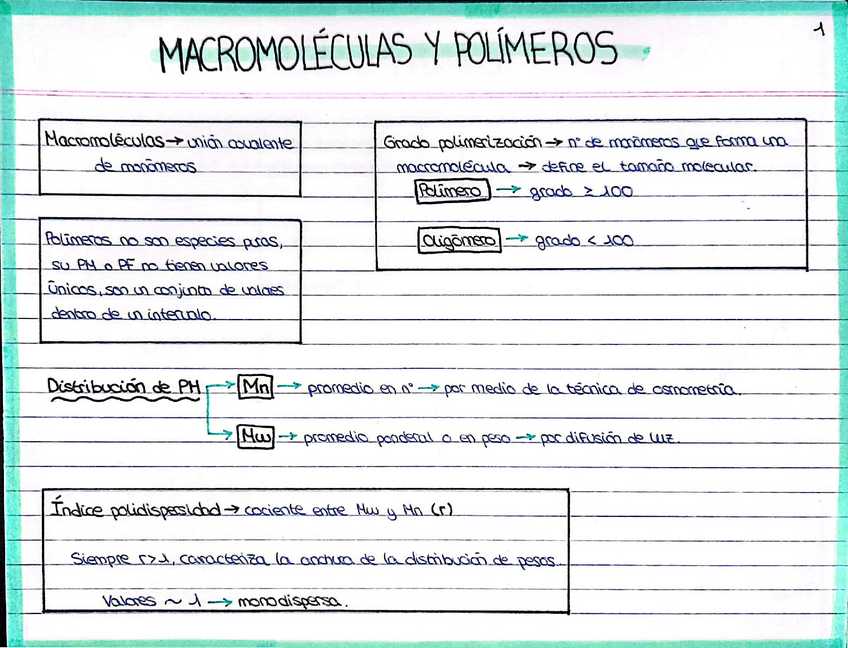 1
MACROMOLÉCULAS Y POLÍMEROS
Macromoléculas → unión covalente
de monómeros
Grado polimerización → nº de monómeros que forma una
macromolécula → define el tamaño molecular.
Polímero → grado ≥ 100
Oligómero → grado < 100
Polímeros no son especies puras,
su PM o PF no tienen valores
únicos, son un conjunto de valores
dentro de un intervalo.
Distribución de PM → Mn → promedio en nº → por medio de la técnica de osmometría.
→ Mw → promedio ponderal o en peso → por difusión de luz.
Índice polidispersidad → cociente entre Mw y Mn (r)
Siempre r>1, caracteriza la anchura de la distribución de pesos.
Valores ~ 1 → monodispersa.